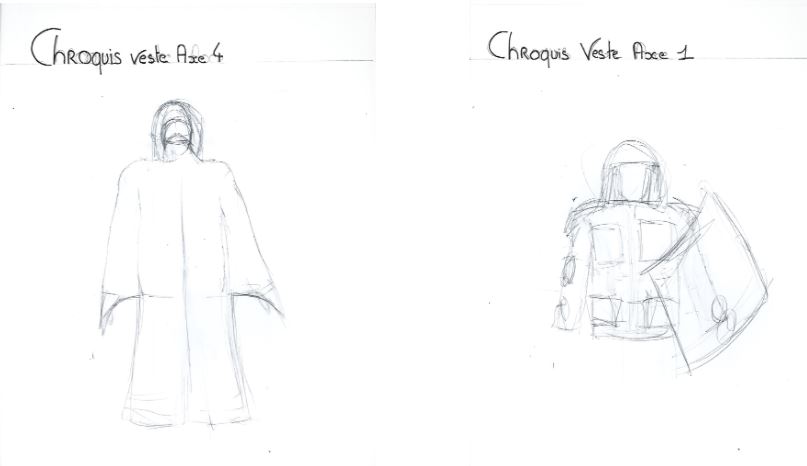 Chroquis veste Axe 4
Chroquis Veste Axe 1